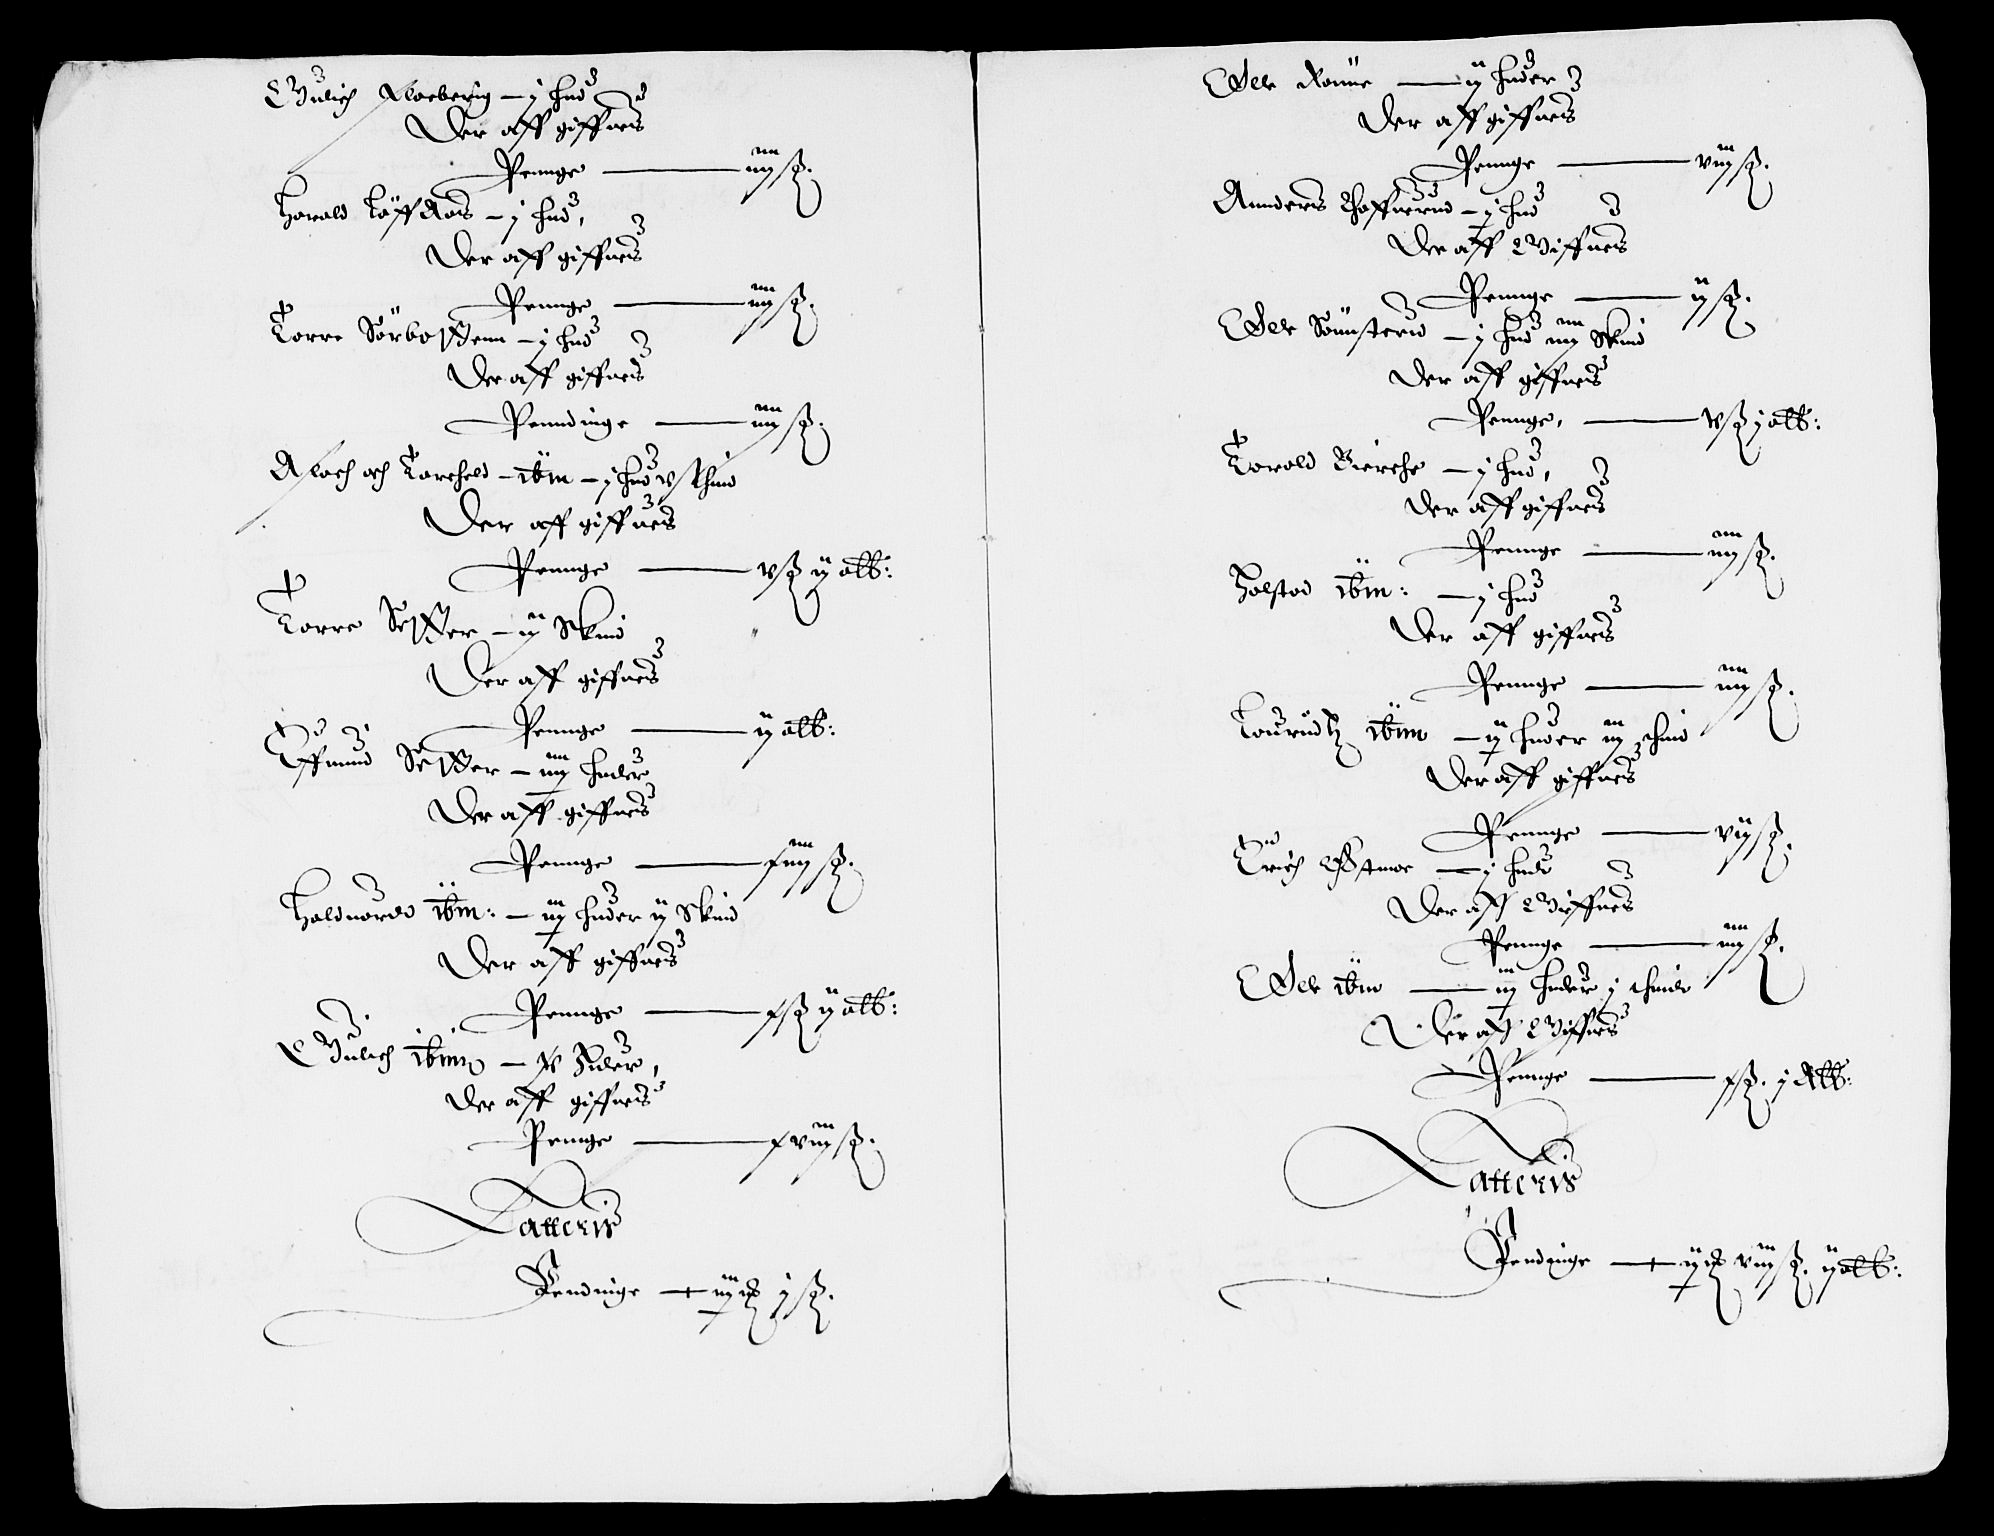 Gulich Floeberig – j hud
Der aff giffues
Penge — iiij ß.
Harald Löffaas – j hud,
Der aff giffues
Penge — iiij ß.
Torre Sörbotten – j hud
Der aff giffues
Penndinge — iiij ß.
Aslach och Torcheld – ibm – j hud v skind
Der aff giffues
Penge — v ß ij alb:
Torre Setter – ij Skind
Der aff giffues
Penge — ij alb:
Effuind Setter – iiij huder
Der aff giffues
Penge — xiiij ß.
Haldnordt ibm: – iij huder ij Skind
Der aff giffues
Penge — x ß ij alb:
Gulich ibim – v huder,
Der aff giffues
Penge — xviij ß.
Latteris
Pendinge — iij ꝺ j ß.
Eder Rönne — ij huder
Der aff giffues
Penge — viij ß.
Annders – j hud
Der aff Giffues
Penge — ij ß.
Eder Sönsterud – j hud iiij Skind
Der aff giffues
Penge, — v ß j alb:
Torald Bierche – j hud,
Der aff giffues
Penge — iiij ß.
Halstad ibm: – j hud
Der aff giffues
Penge — iiij ß.
Lauridtz ibim – ij huder iij schind
Der aff giffues
Penge — vij ß.
Erich Estmoe – j hudt
Der aff Giffues
Penge — iiij ß.
Eder ibm — iij huder j schindt
Der aff Giffues
Penge — x ß. j Alb:
Latteris
Pendinge — ij ꝺ viij ß. ij alb: